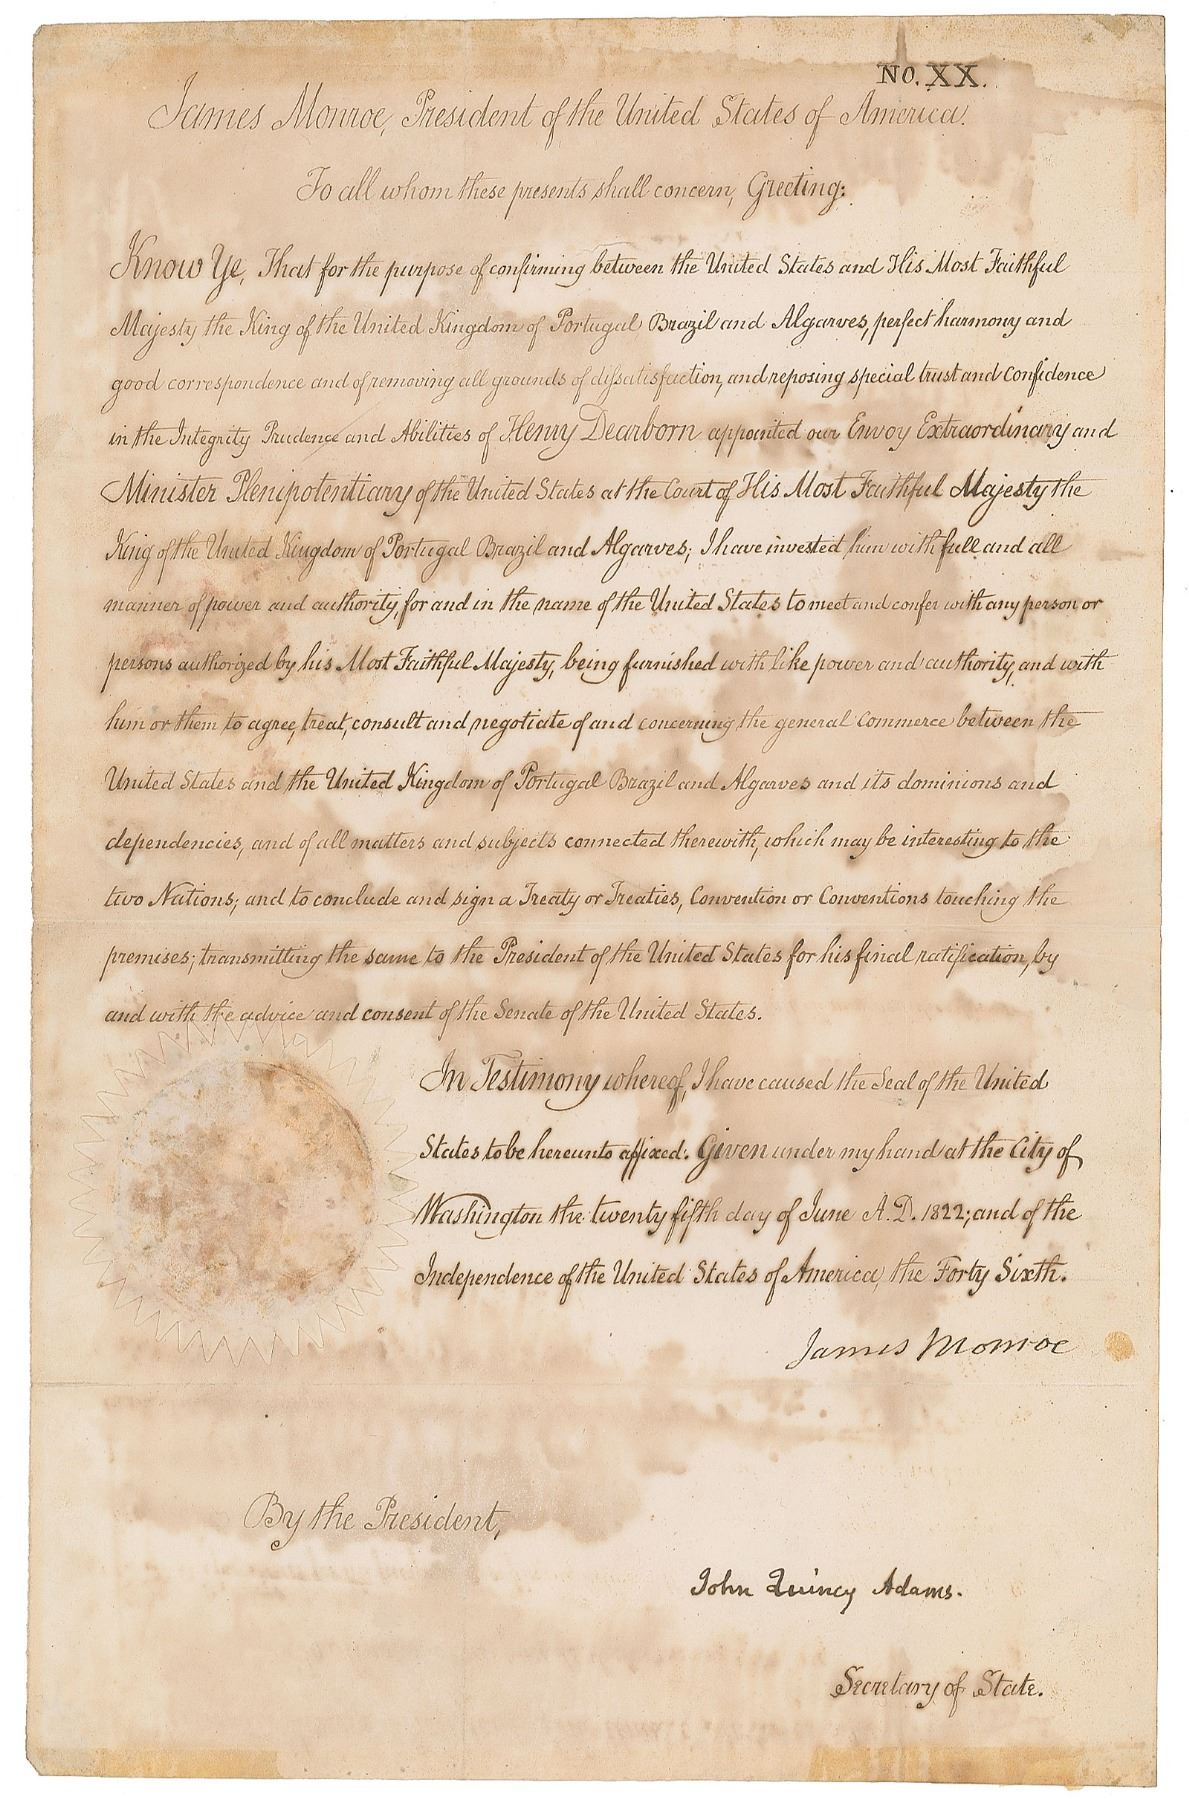 NO. XX.
James Monroe, President of the United States of America.
To all whom these presents shall concern, Greeting:
Know Ye, That for the purpose of confirming between the United States and His Most Faithful
Majesty the King of the United Kingdom of Portugal Brazil and Algarves, perfect harmony and
good correspondence and of removing all grounds of dissatisfaction, and reposing special trust and confidence
in the Integrity Prudence and Abilities of Henry Dearborn appointed our Envoy Extraordinary and
Minister Plenipotentiary of the United States at the Court of His Most Faithful Majesty the
King of the United Kingdom of Portugal Brazil and Algarves; I have invested him with full and all
manner of power and authority, for and in the name of the United States to meet and confer with any person or
persons authorized by his Most Faithful Majesty, being furnished with like power and authority, and with
him or them to agree, treat, consult and negotiate of and concerning the general Commerce between the
United States and the United Kingdom of Portugal Brazil and Algarves and its dominions and
dependencies, and of all matters and subjects connected therewith, which may be interesting to the
two Nations; and to conclude and sign a Treaty or Treaties, Convention or Conventions touching the
premises; transmitting the same to the President of the United States for his final ratification, by
and with the advice and consent of the Senate of the United States.
In Testimony whereof, I have caused the Seal of the United
States to be hereunto affixed. Given under my hand at the City of
Washington the twenty fifth day of June A.D. 1822; and of the
Independence of the United States of America, the Forty Sixth.
James Monroe
By the President,
John Quincy Adams.
Secretary of State.